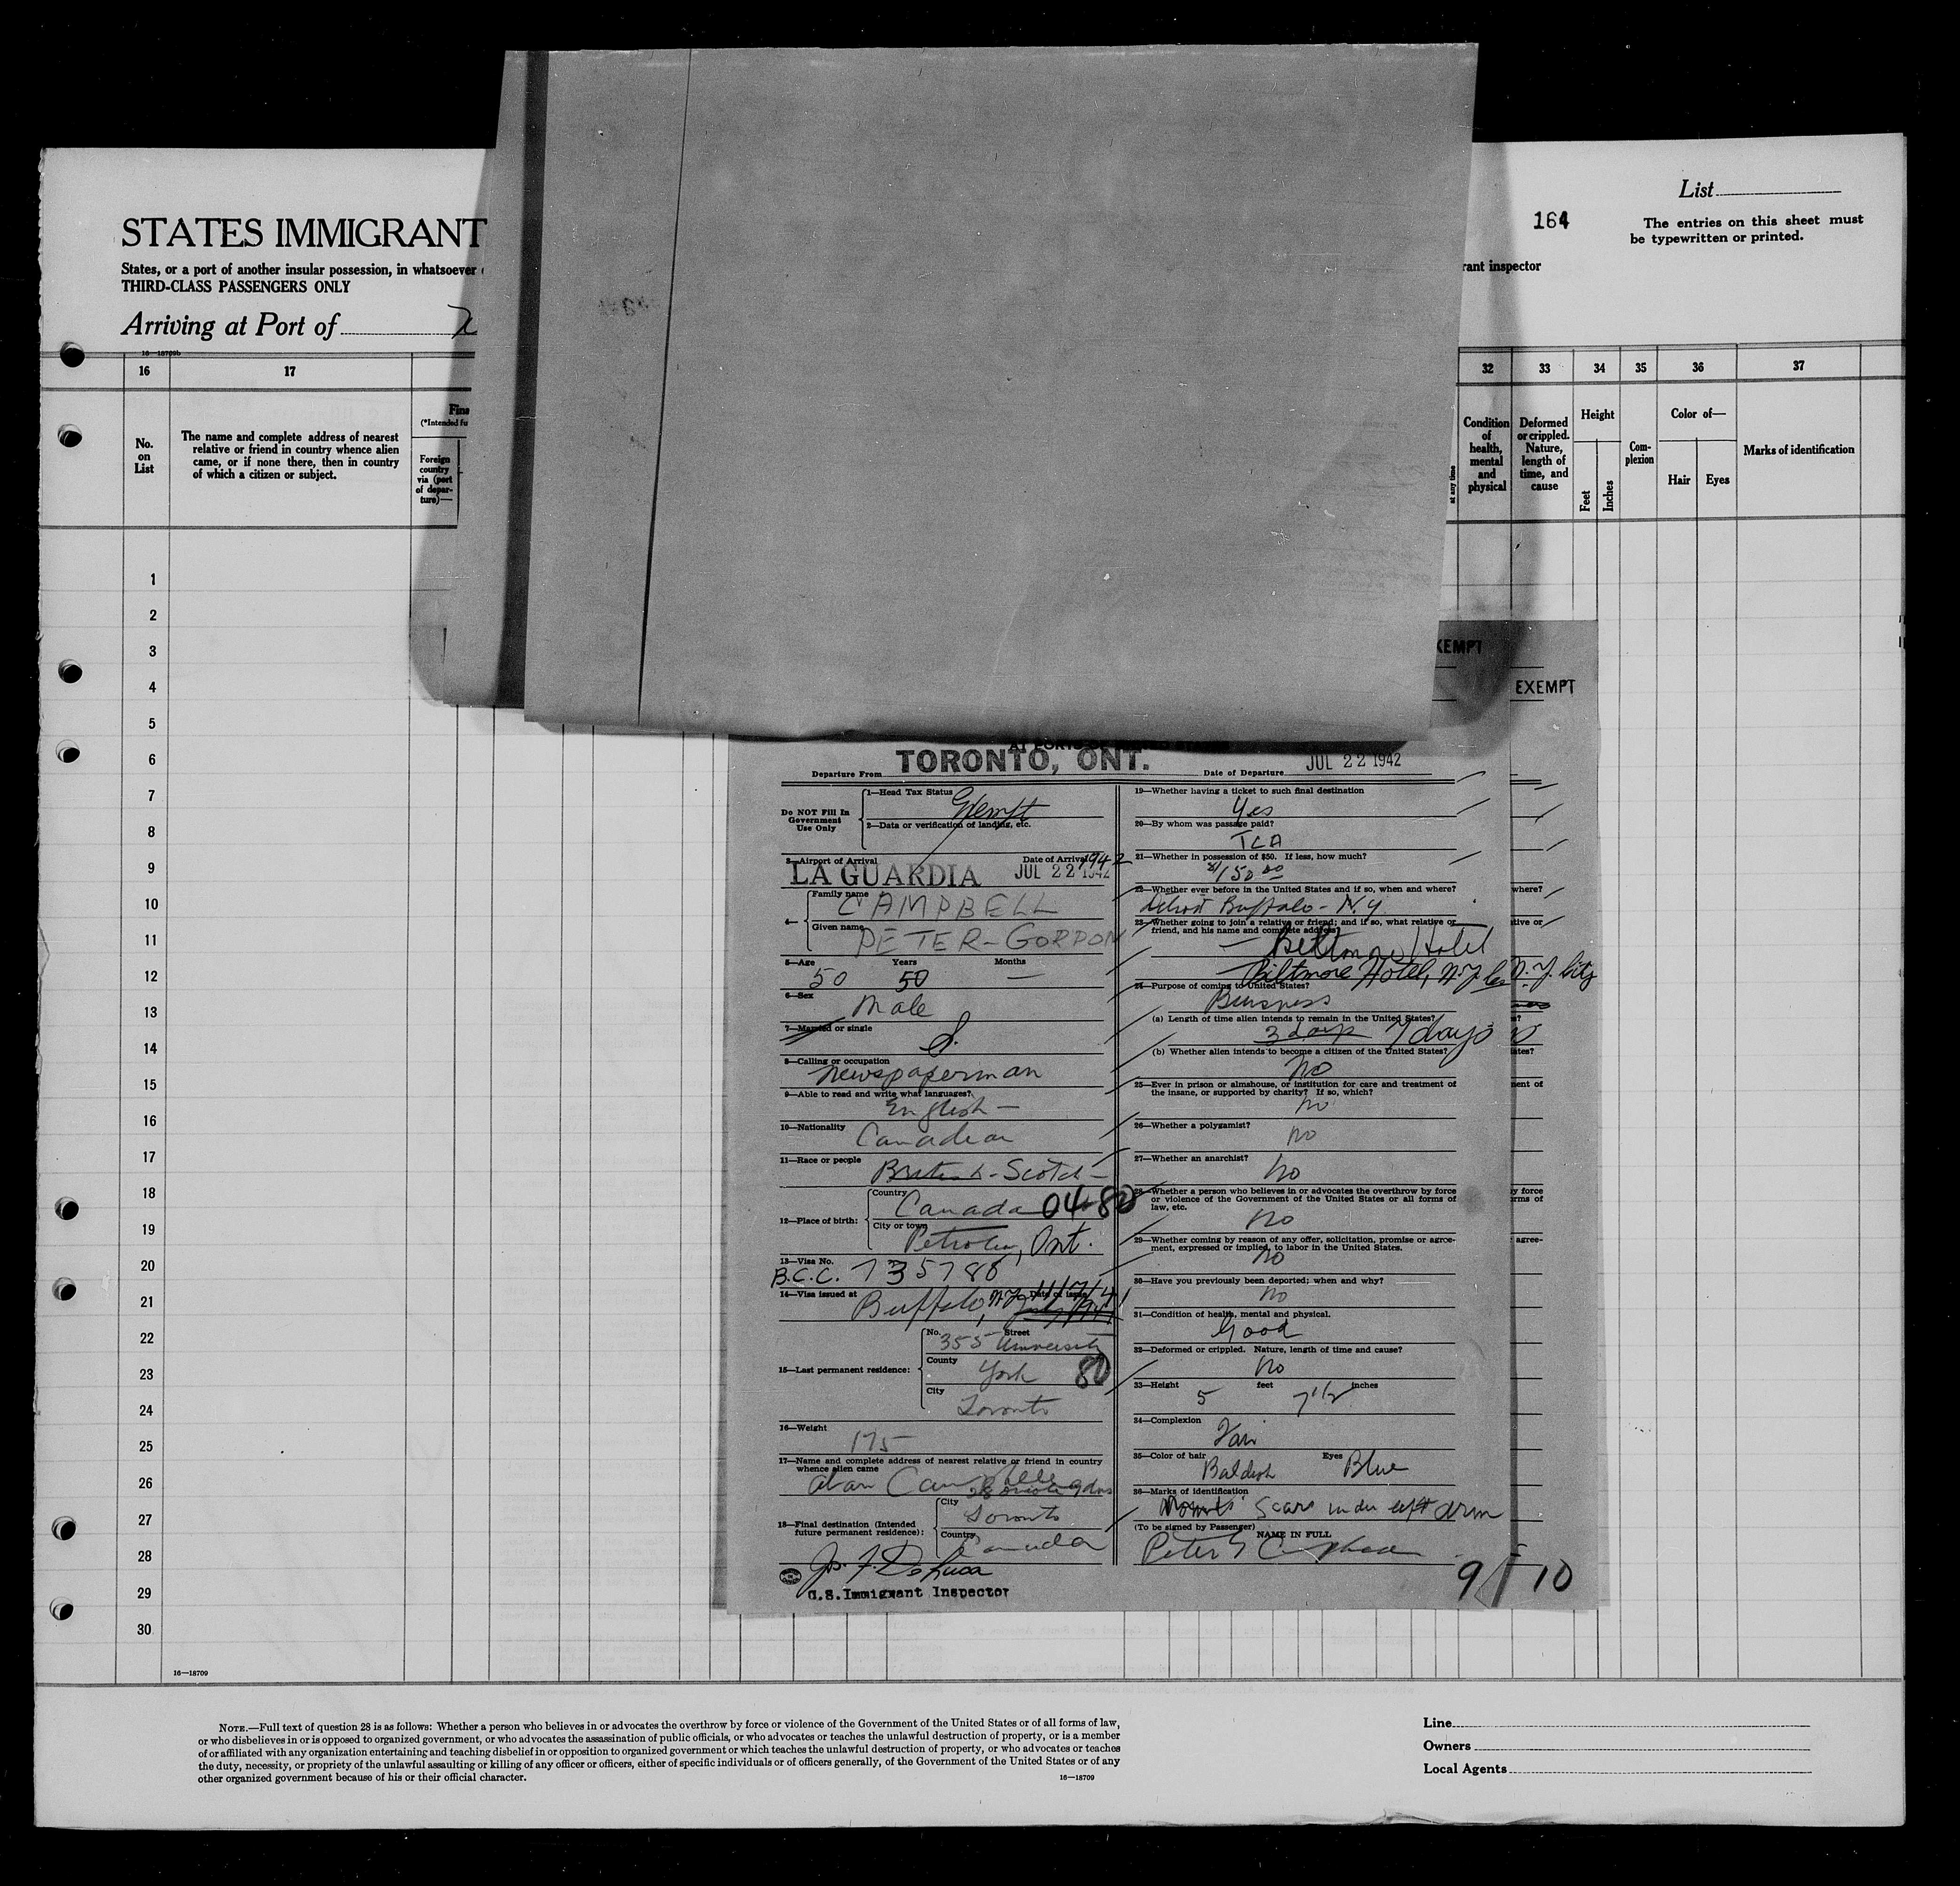 List
164
The entries on this sheet must
be typewritten or printed.
STATES IMMIGRANT
States, or a port of another insular possession, in whatsoever
rant inspector
THIRD-CLASS PASSENGERS ONLY
Arriving at Port of
16—18709b
16 17 32 33 34 35 36 37
No.
on
List
The name and complete address of nearest
relative or friend in country whence alien
came, or if none there, then in country
of which a citizen or subject.
(*Intended fu
Foreign
country
via (port
of depar-
ture)—
at any time
Condition
of
health,
mental
and
physical
Deformed
or crippled.
Nature,
length of
time, and
cause
Height
Feet
Inches
Com-
plexion
Color of—
Hair Eyes
Marks of identification
1
2
3
4
5
6
7
8
9
10
11
12
13
14
15
16
17
18
19
20
21
22
23
24
25
26
27
28
29
30
16—18709
KEMPT
EXEMPT
Departure From TORONTO, ONT.
Date of Departure JUL 22 1942
Do NOT Fill In
Government
Use Only
1—Head Tax Status Exempt
2—Data or verification of landing, etc.
3—Airport of Arrival Date of Arrival 1942
LA GUARDIA JUL 22 1942
4— Family name CAMPBELL
Given name PETER-GORDON
5—Age Years Months
50 50 —
6—Sex Male
7—Married or single S.
8—Calling or occupation
Newspaperman
9—Able to read and write what languages?
English —
10—Nationality Canadian
11—Race or people British - Scotch
12—Place of birth: Country Canada 04-80
City or town Petrolia, Ont.
13—Visa No.
B.C.C. 735788
14—Visa issued at Date of issue
Buffalo, N.Y.
15—Last permanent residence: No. Street
355 University
County York 80
City Toronto
16—Weight 175
17—Name and complete address of nearest relative or friend in country
whence alien came
Alan Campbell
18—Final destination (Intended
future permanent residence):
City Toronto
Country Canada
U.S. Immigrant Inspector
19—Whether having a ticket to such final destination
Yes
20—By whom was passage paid?
TCA
21—Whether in possession of $50. If less, how much?
$150.00
22—Whether ever before in the United States and if so, when and where?
Detroit Buffalo - N.Y.
23—Whether going to join a relative or friend; and if so, what relative or
friend, and his name and complete address?
— Biltmore Hotel
Biltmore Hotel, N.Y. City
24—Purpose of coming to United States?
Business
(a) Length of time alien intends to remain in the United States?
3 days 7 days
(b) Whether alien intends to become a citizen of the United States?
No
25—Ever in prison or almshouse, or institution for care and treatment of
the insane, or supported by charity? If so, which?
No
26—Whether a polygamist?
No
27—Whether an anarchist?
No
28—Whether a person who believes in or advocates the overthrow by force
or violence of the Government of the United States or all forms of
law, etc.
No
29—Whether coming by reason of any offer, solicitation, promise or agree-
ment, expressed or implied, to labor in the United States.
No
30—Have you previously been deported; when and why?
No
31—Condition of health, mental and physical.
Good
32—Deformed or crippled. Nature, length of time and cause?
No
33—Height 5 feet 7 1/2 inches
34—Complexion
Fair
35—Color of hair Baldish Eyes Blue
36—Marks of identification
Scars under left arm
(To be signed by Passenger) NAME IN FULL
Peter G Campbell
where?
tive or
N.Y. City
ates?
ment of
by force
rms of
agree-
9 10
NOTE.—Full text of question 28 is as follows: Whether a person who believes in or advocates the overthrow by force or violence of the Government of the United States or of all forms of law,
or who disbelieves in or is opposed to organized government, or who advocates the assassination of public officials, or who advocates or teaches the unlawful destruction of property, or is a member
of or affiliated with any organization entertaining and teaching disbelief in or opposition to organized government or which teaches the unlawful destruction of property, or who advocates or teaches
the duty, necessity, or propriety of the unlawful assaulting or killing of any officer or officers, either of specific individuals or of officers generally, of the Government of the United States or of any
other organized government because of his or their official character.
16—18709
Line
Owners
Local Agents